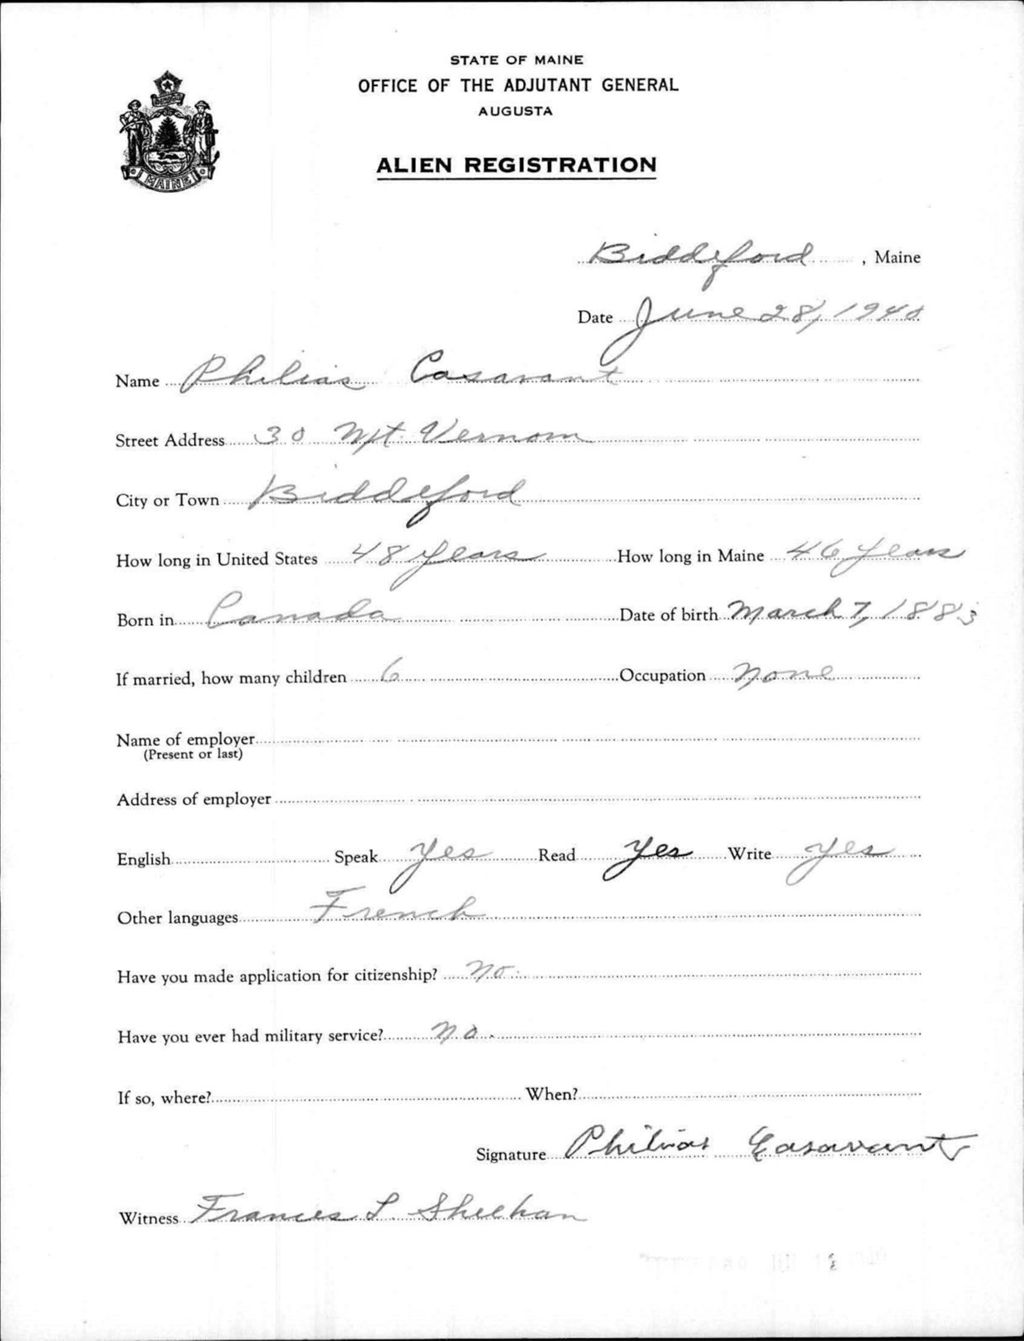 STATE OF MAINE
OFFICE OF THE ADJUTANT GENERAL
AUGUSTA
ALIEN REGISTRATION
MAINE
Biddeford, Maine
Date June 28, 1940
Name Philias Casavant
Street Address 30 Mt. Vernom
City or Town Biddeford
How long in United States 48 years How long in Maine 46 years
Born in Canada Date of birth March 7, 1883
If married, how many children 6 Occupation None
Name of employer
(Present or last)
Address of employer
English Speak Yes Read Yes Write Yes
Other languages French
Have you made application for citizenship? No.
Have you ever had military service? No.
If so, where? When?
Signature Philias Casavant
Witness Frances L Sheehan